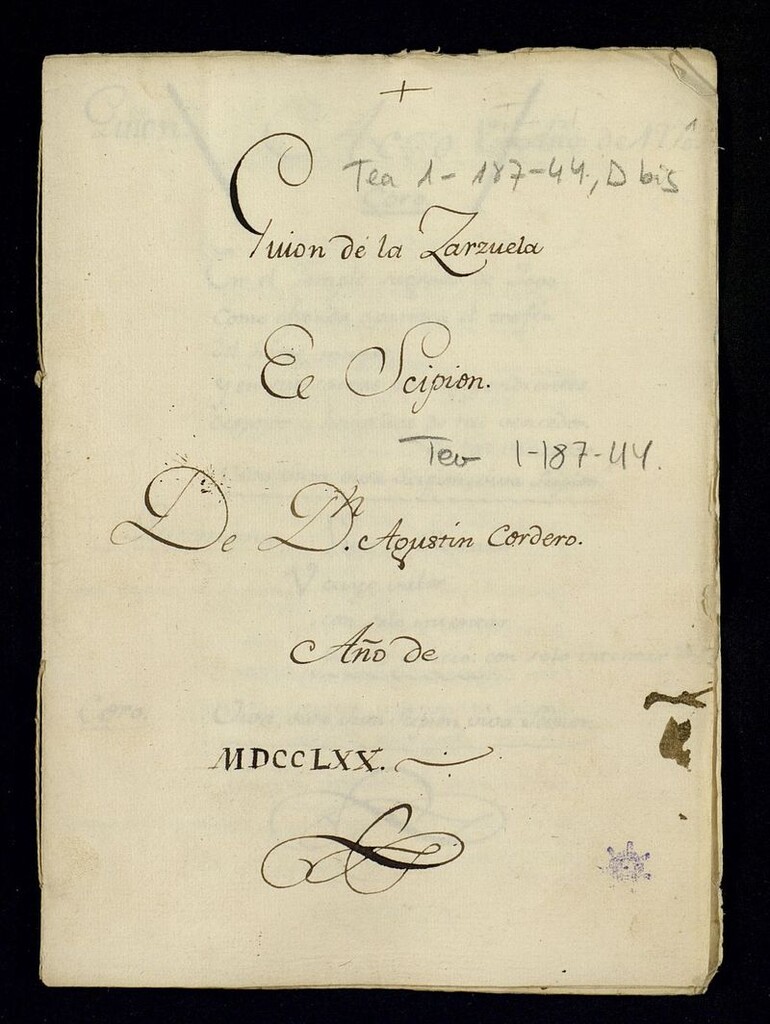 +
Tea 1-187-44, D bis
Guion de la Zarzuela
El Scipion.
Tea 1-187-44.
De Dn. Agustin Cordero.
Año de
MDCCLXX.